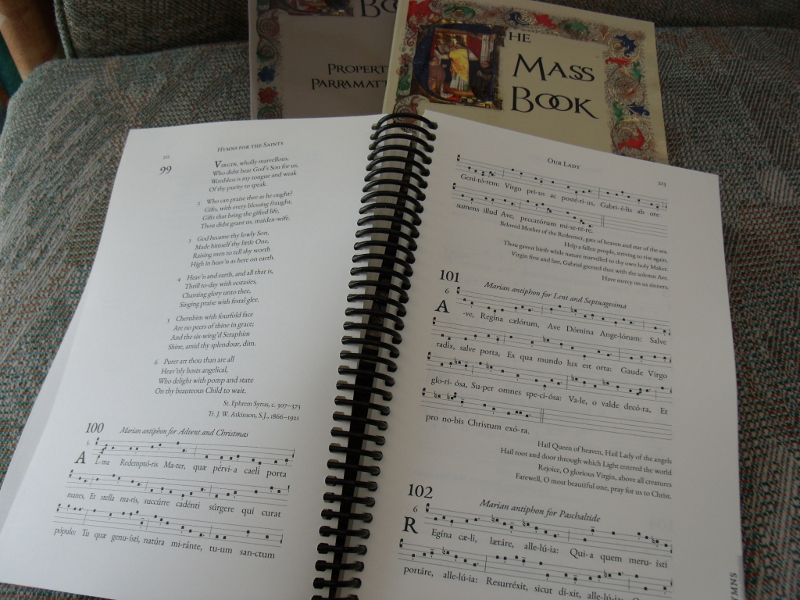 BO
PROPERT
PARRAMATT
THE
MASS
BOOK
HYMNS FOR THE SAINTS
99
VIRGIN, wholly marvellous,
Who didst bear God's Son for us,
Worthless is my tongue and weak
Of thy purity to speak.
2 Who can praise thee as he ought?
Gifts, with every blessing fraught,
Gifts that bring the gifted life,
Thou didst grant us, maiden-wife.
3 God became thy lowly Son,
Made himself thy little One,
Raising men to tell thy worth
High in heav'n as here on earth.
4 Heav'n and earth, and all that is,
Thrill to-day with ecstasies,
Chanting glory unto thee,
Singing praise with festal glee.
5 Cherubim with fourfold face
Are no peers of thine in grace;
And the six-wing'd Seraphim
Shine, amid thy splendour, dim.
6 Purer art thou than are all
Heav'nly hosts angelical,
Who delight with pomp and state
On thy beauteous Child to wait.
St. Ephrem Syrus, c. 307–373
Tr. J. W. Atkinson, S.J., 1866–1921
100 Marian antiphon for Advent and Christmas
A L-ma Redemptó-ris Ma-ter, quæ pérvi-a caeli porta
manes, Et stella ma-ris, succúrre cadénti súrgere qui curat
pópulo: Tu quæ genu-ísti, natúra mi-ránte, tu-um sanctum
OUR LADY
Geni-tó-rem: Virgo pri-us ac posté-ri-us, Gabri-é-lis ab ore
sumens illud Ave, peccatórum mi-se-ré-re.
Beloved Mother of the Redeemer, gate of heaven and star of the sea,
Help a fallen people, striving to rise again,
Thou gavest birth while nature marvelled to thy own holy Maker.
Virgin first and last, Gabriel greeted thee with the solemn Ave.
Have mercy on us sinners.
101
6 Marian antiphon for Lent and Septuagesima
A -ve, Regína cælórum, Ave Dómina Ange-lórum: Salve
radix, salve porta, Ex qua mundo lux est orta: Gaude Virgo
glo-ri-ósa, Su-per omnes spe-ci-ósa: Va-le, o valde decó-ra, Et
pro no-bis Christum exó-ra.
Hail Queen of heaven, Hail Lady of the angels
Hail root and door through which Light entered the world
Rejoice, O glorious Virgin, above all creatures
Farewell, O most beautiful one, pray for us to Christ.
102
6 Marian antiphon for Paschaltide
R Egína cæ-li, lætáre, alle-lú-ia: Qui-a quem meru-ísti
portáre, alle-lú-ia: Resurréxit, sicut di-xit, alle-lú-ia:
YMNS